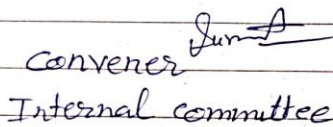 Convener
Internal committee